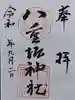 奉拝
八重垣神社
令和 年九月二日